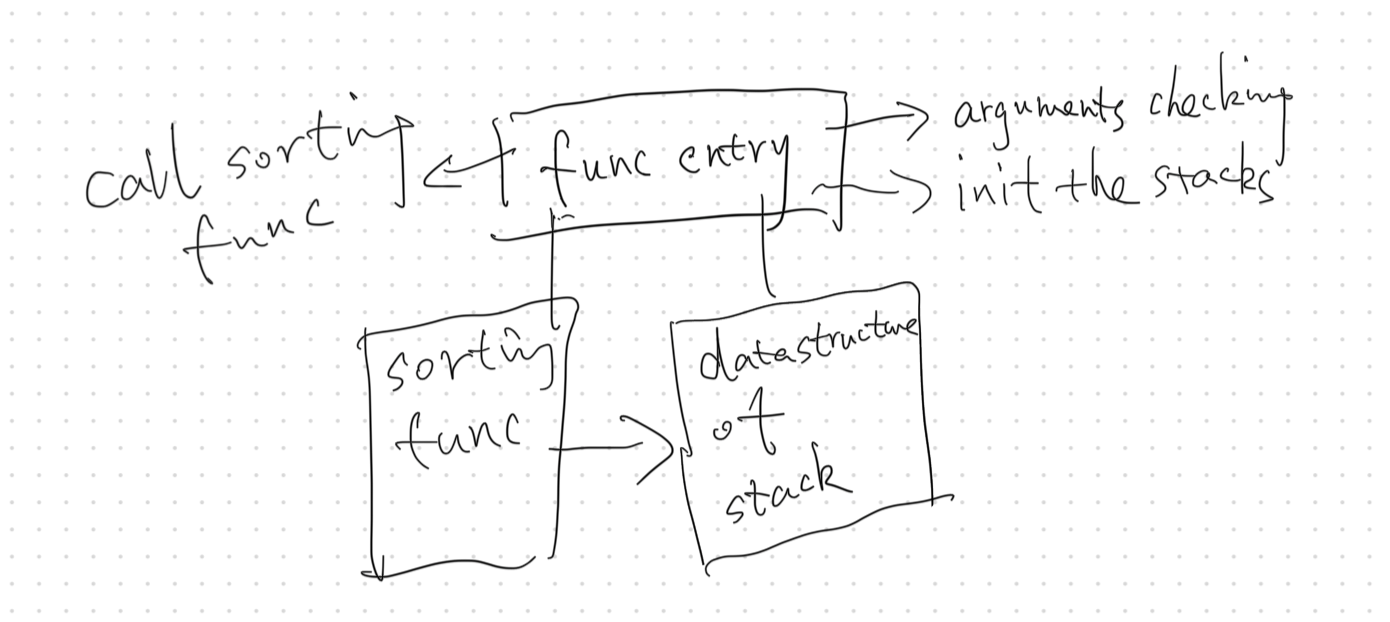 call sorting
func
func entry
arguments checking
init the stacks
sorting
func
datastructure
of
stack